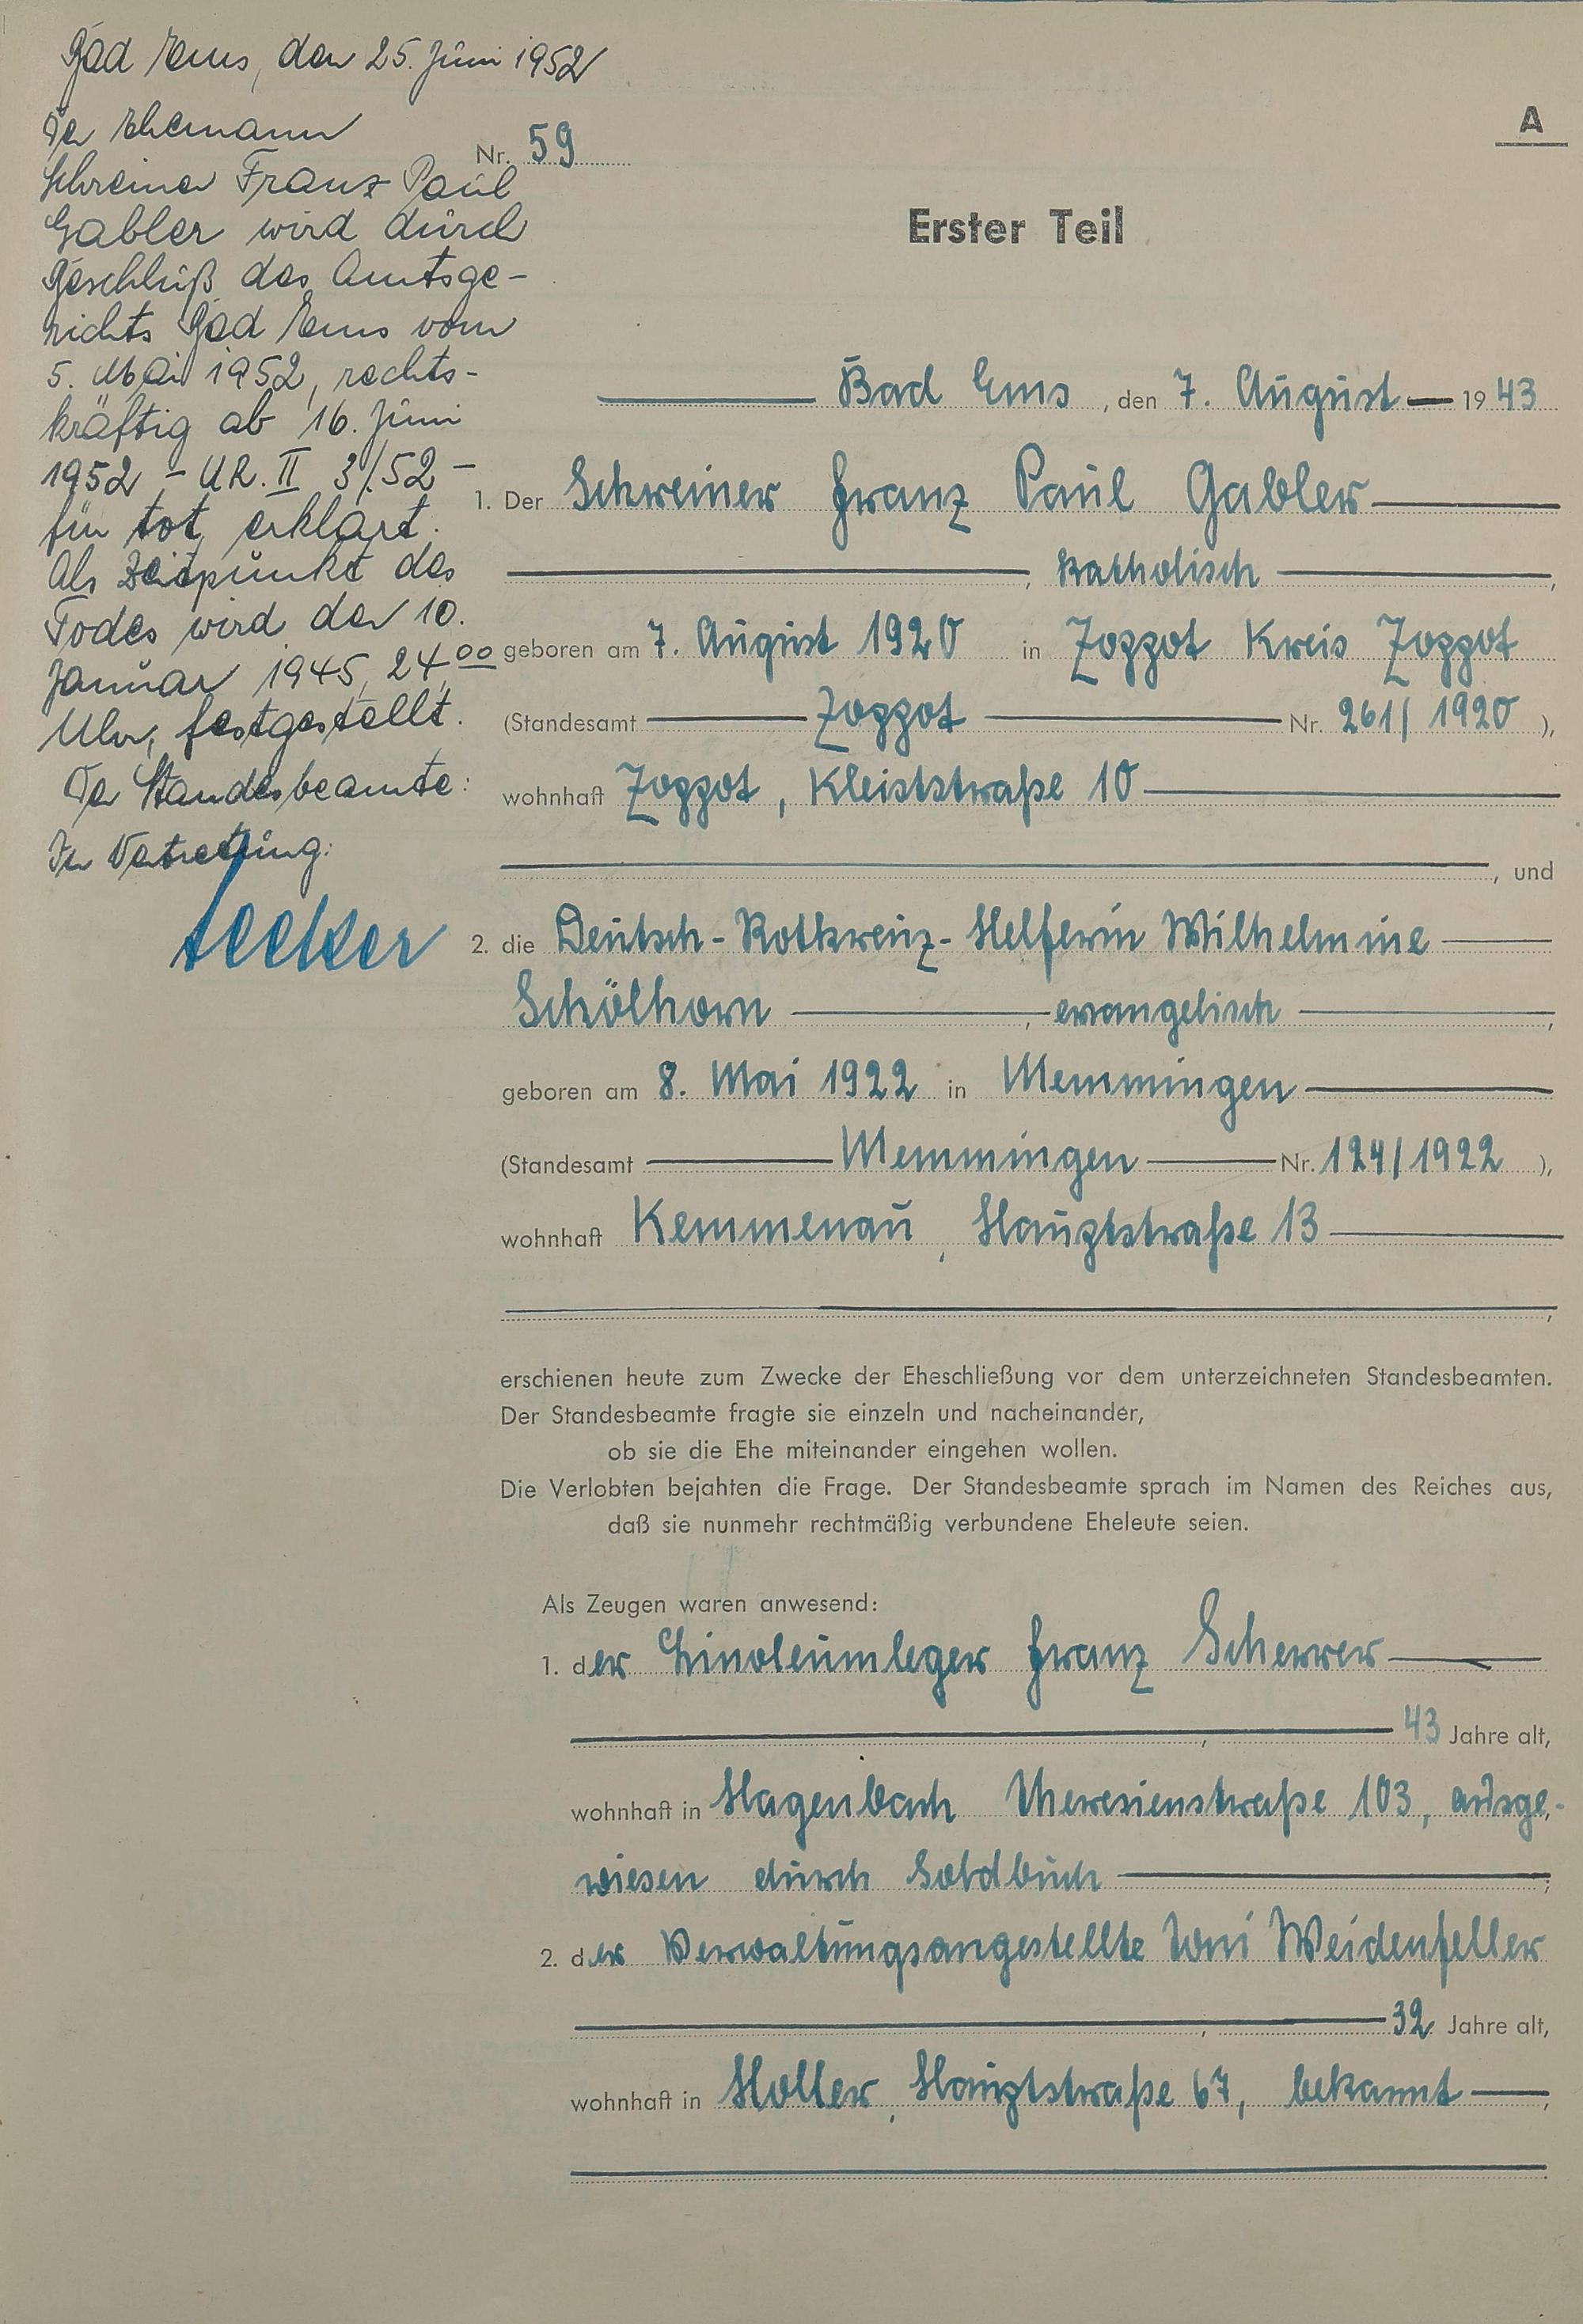 Bad Ems, den 25. Juni 1952
Der Ehemann
Schreiner Franz Paul
Gabler wird durch
Beschluß des Amtsge-
richts Bad Ems vom
5. Mai 1952, rechts-
kräftig ab 16. Juni
1952 - UR. II 3/52 -
für tot erklärt.
Als Zeitpunkt des
Todes wird der 10.
Januar 1945, 24,00
Uhr, festgestellt.
Der Standesbeamte:
In Vertretung:
A
Nr. 59
Erster Teil
Bad Ems, den 7. August 1943
1. Der Schreiner Franz Paul Gabler
, katholisch,
geboren am 7. August 1920 in Zoppot Kreis Zoppot
(Standesamt Zoppot Nr. 261/1920),
wohnhaft Zoppot, Kleiststraße 10
, und
2. die Deutsch-Rotkreuz-Helferin Wilhelmine
Schölhorn, evangelisch,
geboren am 8. Mai 1922 in Memmingen
(Standesamt Memmingen Nr. 124/1922),
wohnhaft Kemmenau, Hauptstraße 13
,
erschienen heute zum Zwecke der Eheschließung vor dem unterzeichneten Standesbeamten.
Der Standesbeamte fragte sie einzeln und nacheinander,
ob sie die Ehe miteinander eingehen wollen.
Die Verlobten bejahten die Frage. Der Standesbeamte sprach im Namen des Reiches aus,
daß sie nunmehr rechtmäßig verbundene Eheleute seien.
Als Zeugen waren anwesend:
1. der Linoleumleger Franz Scherrer
, 43 Jahre alt,
wohnhaft in Hagenbach Theresienstraße 103, ausge-
wiesen durch Soldbuch;
2. der Verwaltungsangestellte Toni Weidenfeller
, 32 Jahre alt,
wohnhaft in Holler, Hauptstraße 67, bekannt,